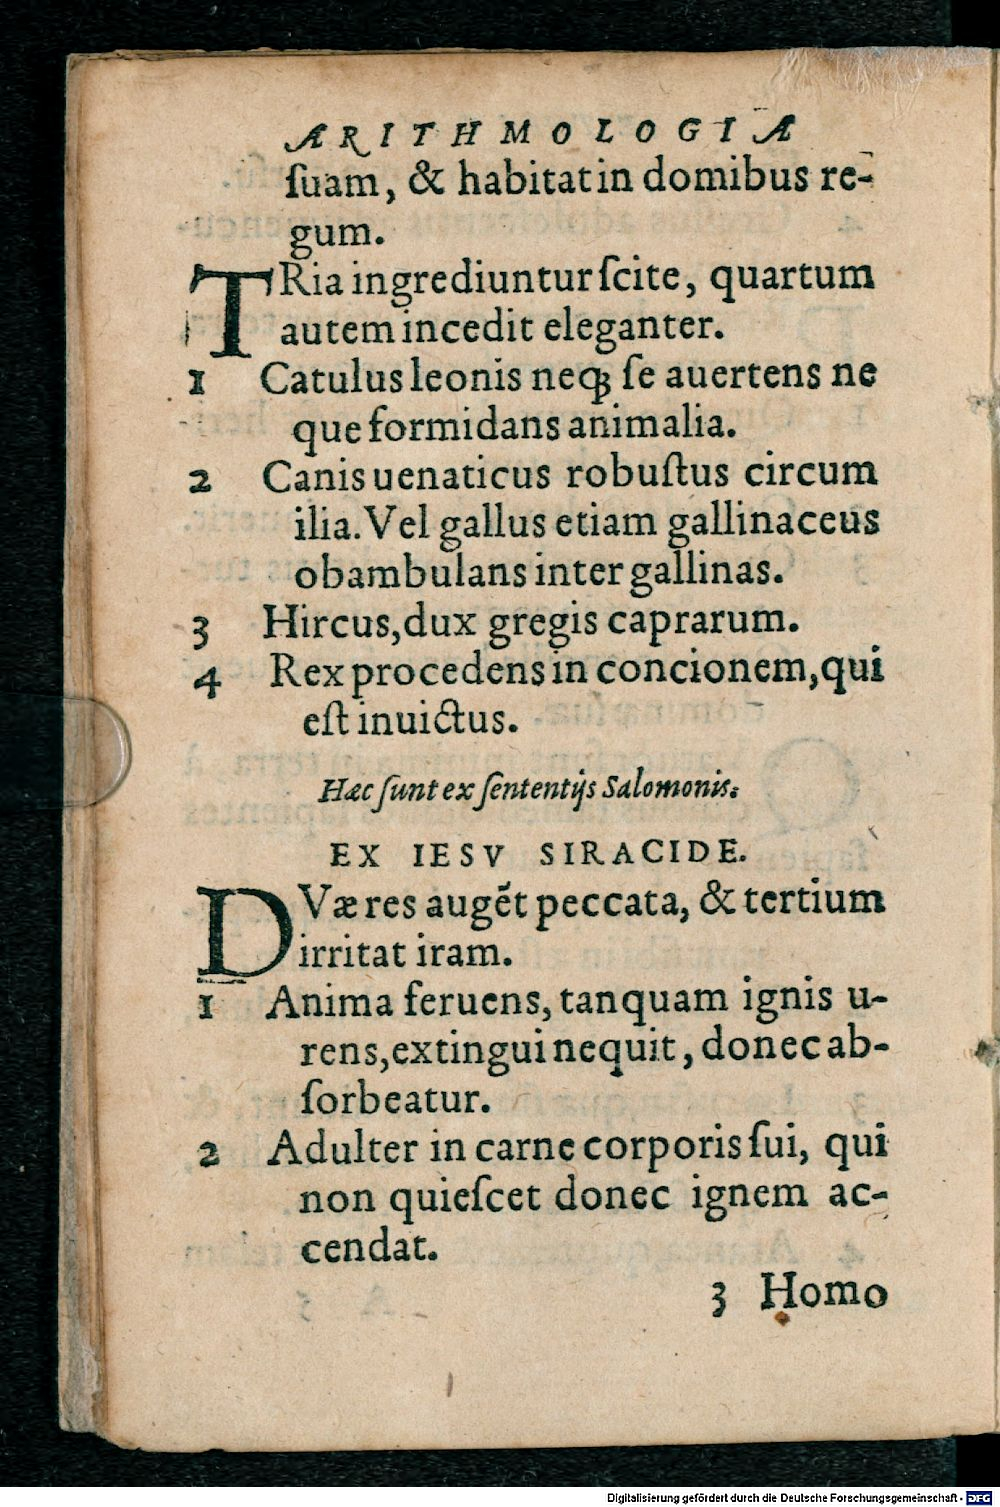 ARITHMOLOGIA
ſuam, & habitat in domibus re-
gum.
TRia ingrediuntur ſcite, quartum
autem incedit eleganter.
1 Catulus leonis neqꝫ ſe auertens ne
que formidans animalia.
2 Canis uenaticus robuſtus circum
ilia. Vel gallus etiam gallinaceus
obambulans inter gallinas.
3 Hircus, dux gregis caprarum.
4 Rex procedens in concionem, qui
eſt inuictus.
Hæc ſunt ex ſententijs Salomonis.
EX IESV SIRACIDE.
DVæ res augẽt peccata, & tertium
irritat iram.
1 Anima feruens, tanquam ignis u-
rens, extingui nequit, donec ab-
ſorbeatur.
2 Adulter in carne corporis ſui, qui
non quieſcet donec ignem ac-
cendat.
3 Homo
Digitalisierung gefördert durch die Deutsche Forschungsgemeinschaft - DFG